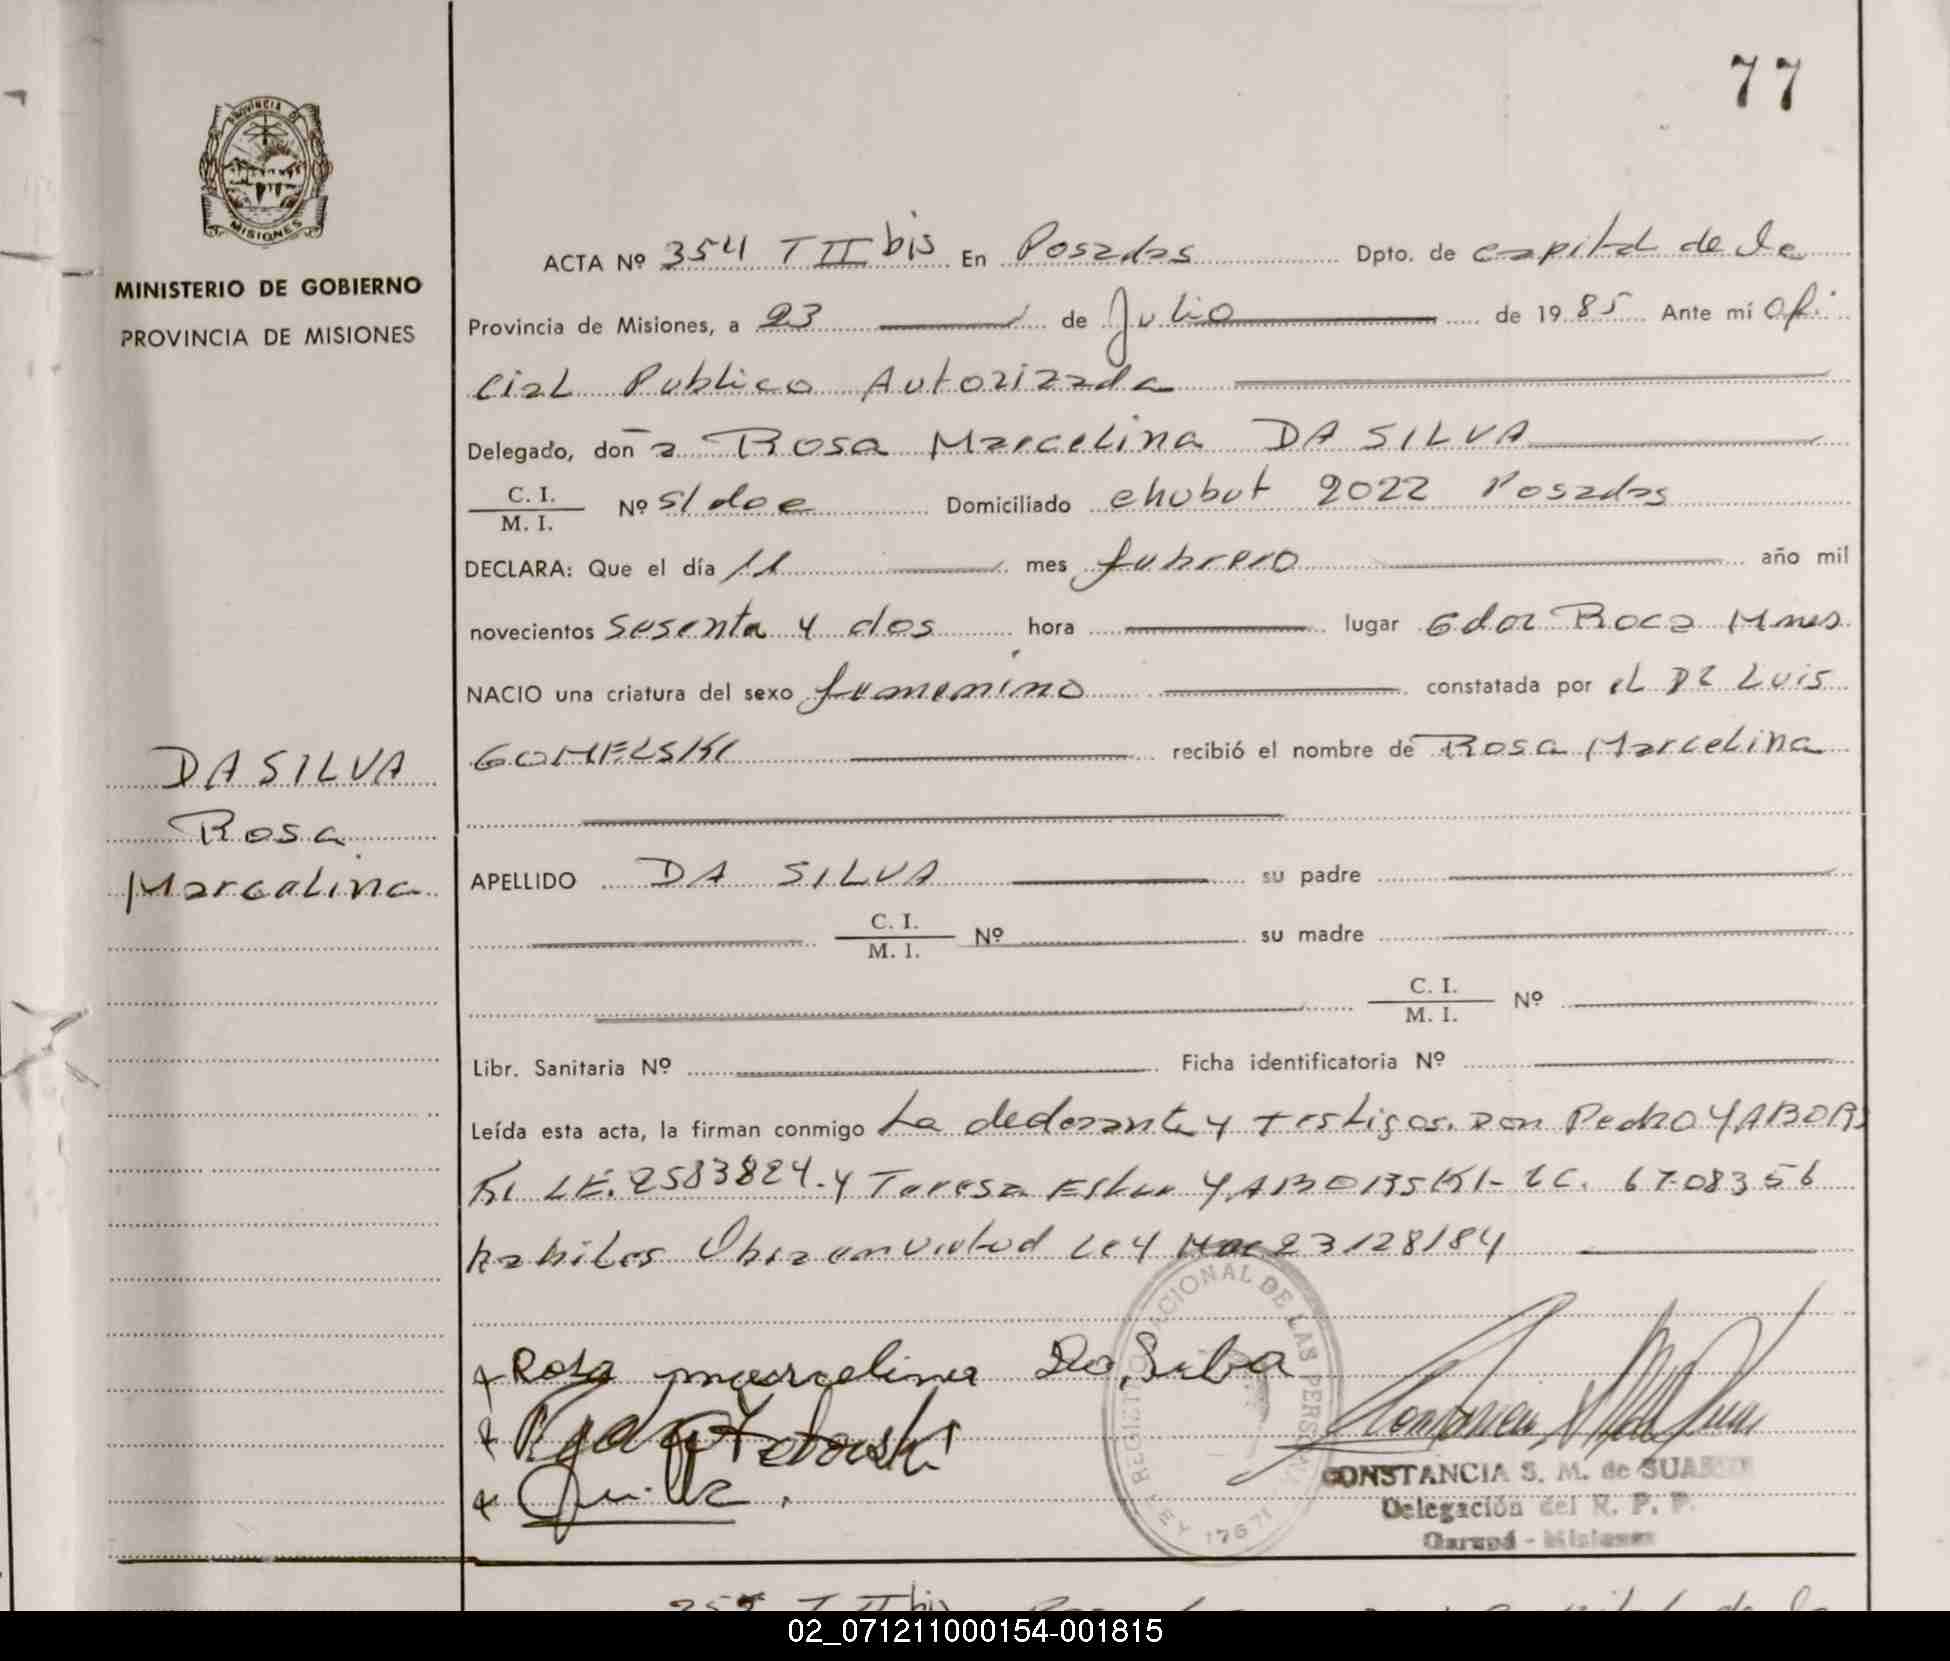 77
PROVINCIA DE
MISIONES
MINISTERIO DE GOBIERNO
PROVINCIA DE MISIONES
ACTA Nº 354 T II bis En Posadas Dpto. de capital de la
Provincia de Misiones, a 23 de Julio de 1985 Ante mí Ofi
cial Publico Autorizada
Delegado, doña Rosa Marcelina DA SILVA
C. I.
M. I. Nº s/doc Domiciliado chubut 2022 Posadas
DECLARA: Que el día 11 mes febrero año mil
novecientos sesenta y dos hora lugar Gdor Roca Mnes
NACIO una criatura del sexo femenino constatada por el Dr Luis
GOMELSKI recibió el nombre de Rosa Marcelina
DA SILVA
Rosa
Marcelina
APELLIDO DA SILVA su padre
C. I.
M. I. Nº su madre
C. I.
M. I. Nº
Libr. Sanitaria Nº Ficha identificatoria Nº
Leída esta acta, la firman conmigo La declarante y testigos. Don Pedro YABORS
KI LE. 2583824. y Teresa Ester YABORSKI- LC. 6708356
habiles Obra en virtud Ley 23128/84
Rosa marcelina Da Silba
REGISTRO NACIONAL DE LAS PERSONAS
LEY 17671
CONSTANCIA S. M. de SUAREZ
Delegación del R. P. P.
Garupá - Misiones
T II bis
02_071211000154-001815